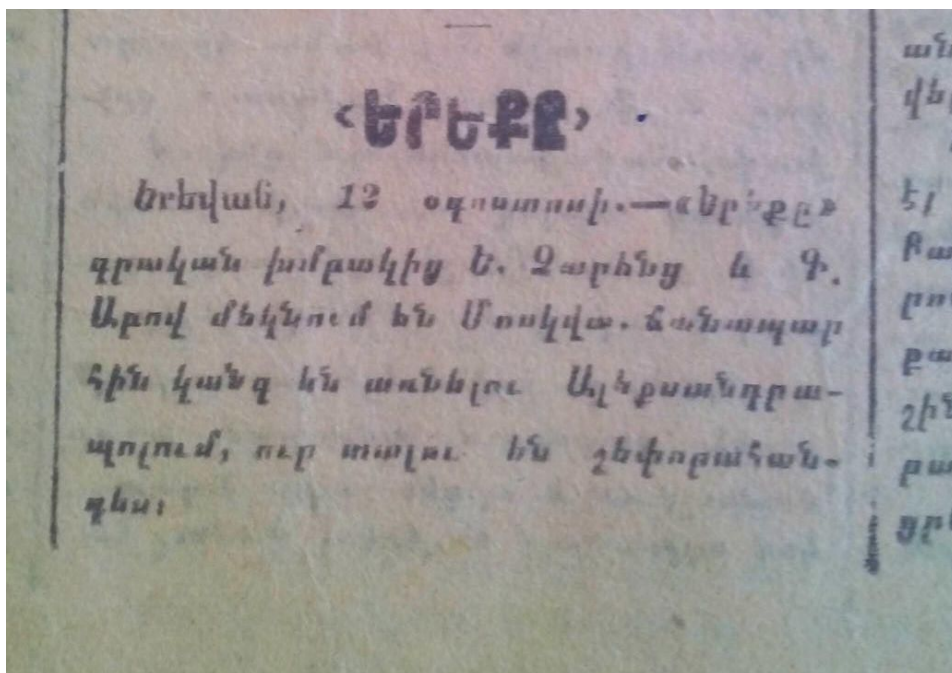 ‹ԵՐԵՔԸ›
Երեվան, 12 օգոստոսի.—«Երեքը»
գրական խմբակից Ե. Չարենցը և Գ.
Աբով մեկնում են Մոսկվա. ճանապար
հին կանգ են առնելու Ալեքսանդրա-
պոլում, ուր տալու են շեփորահան-
դես։
ան
վել
էլ
րո
քա
շին
բա
ցրե